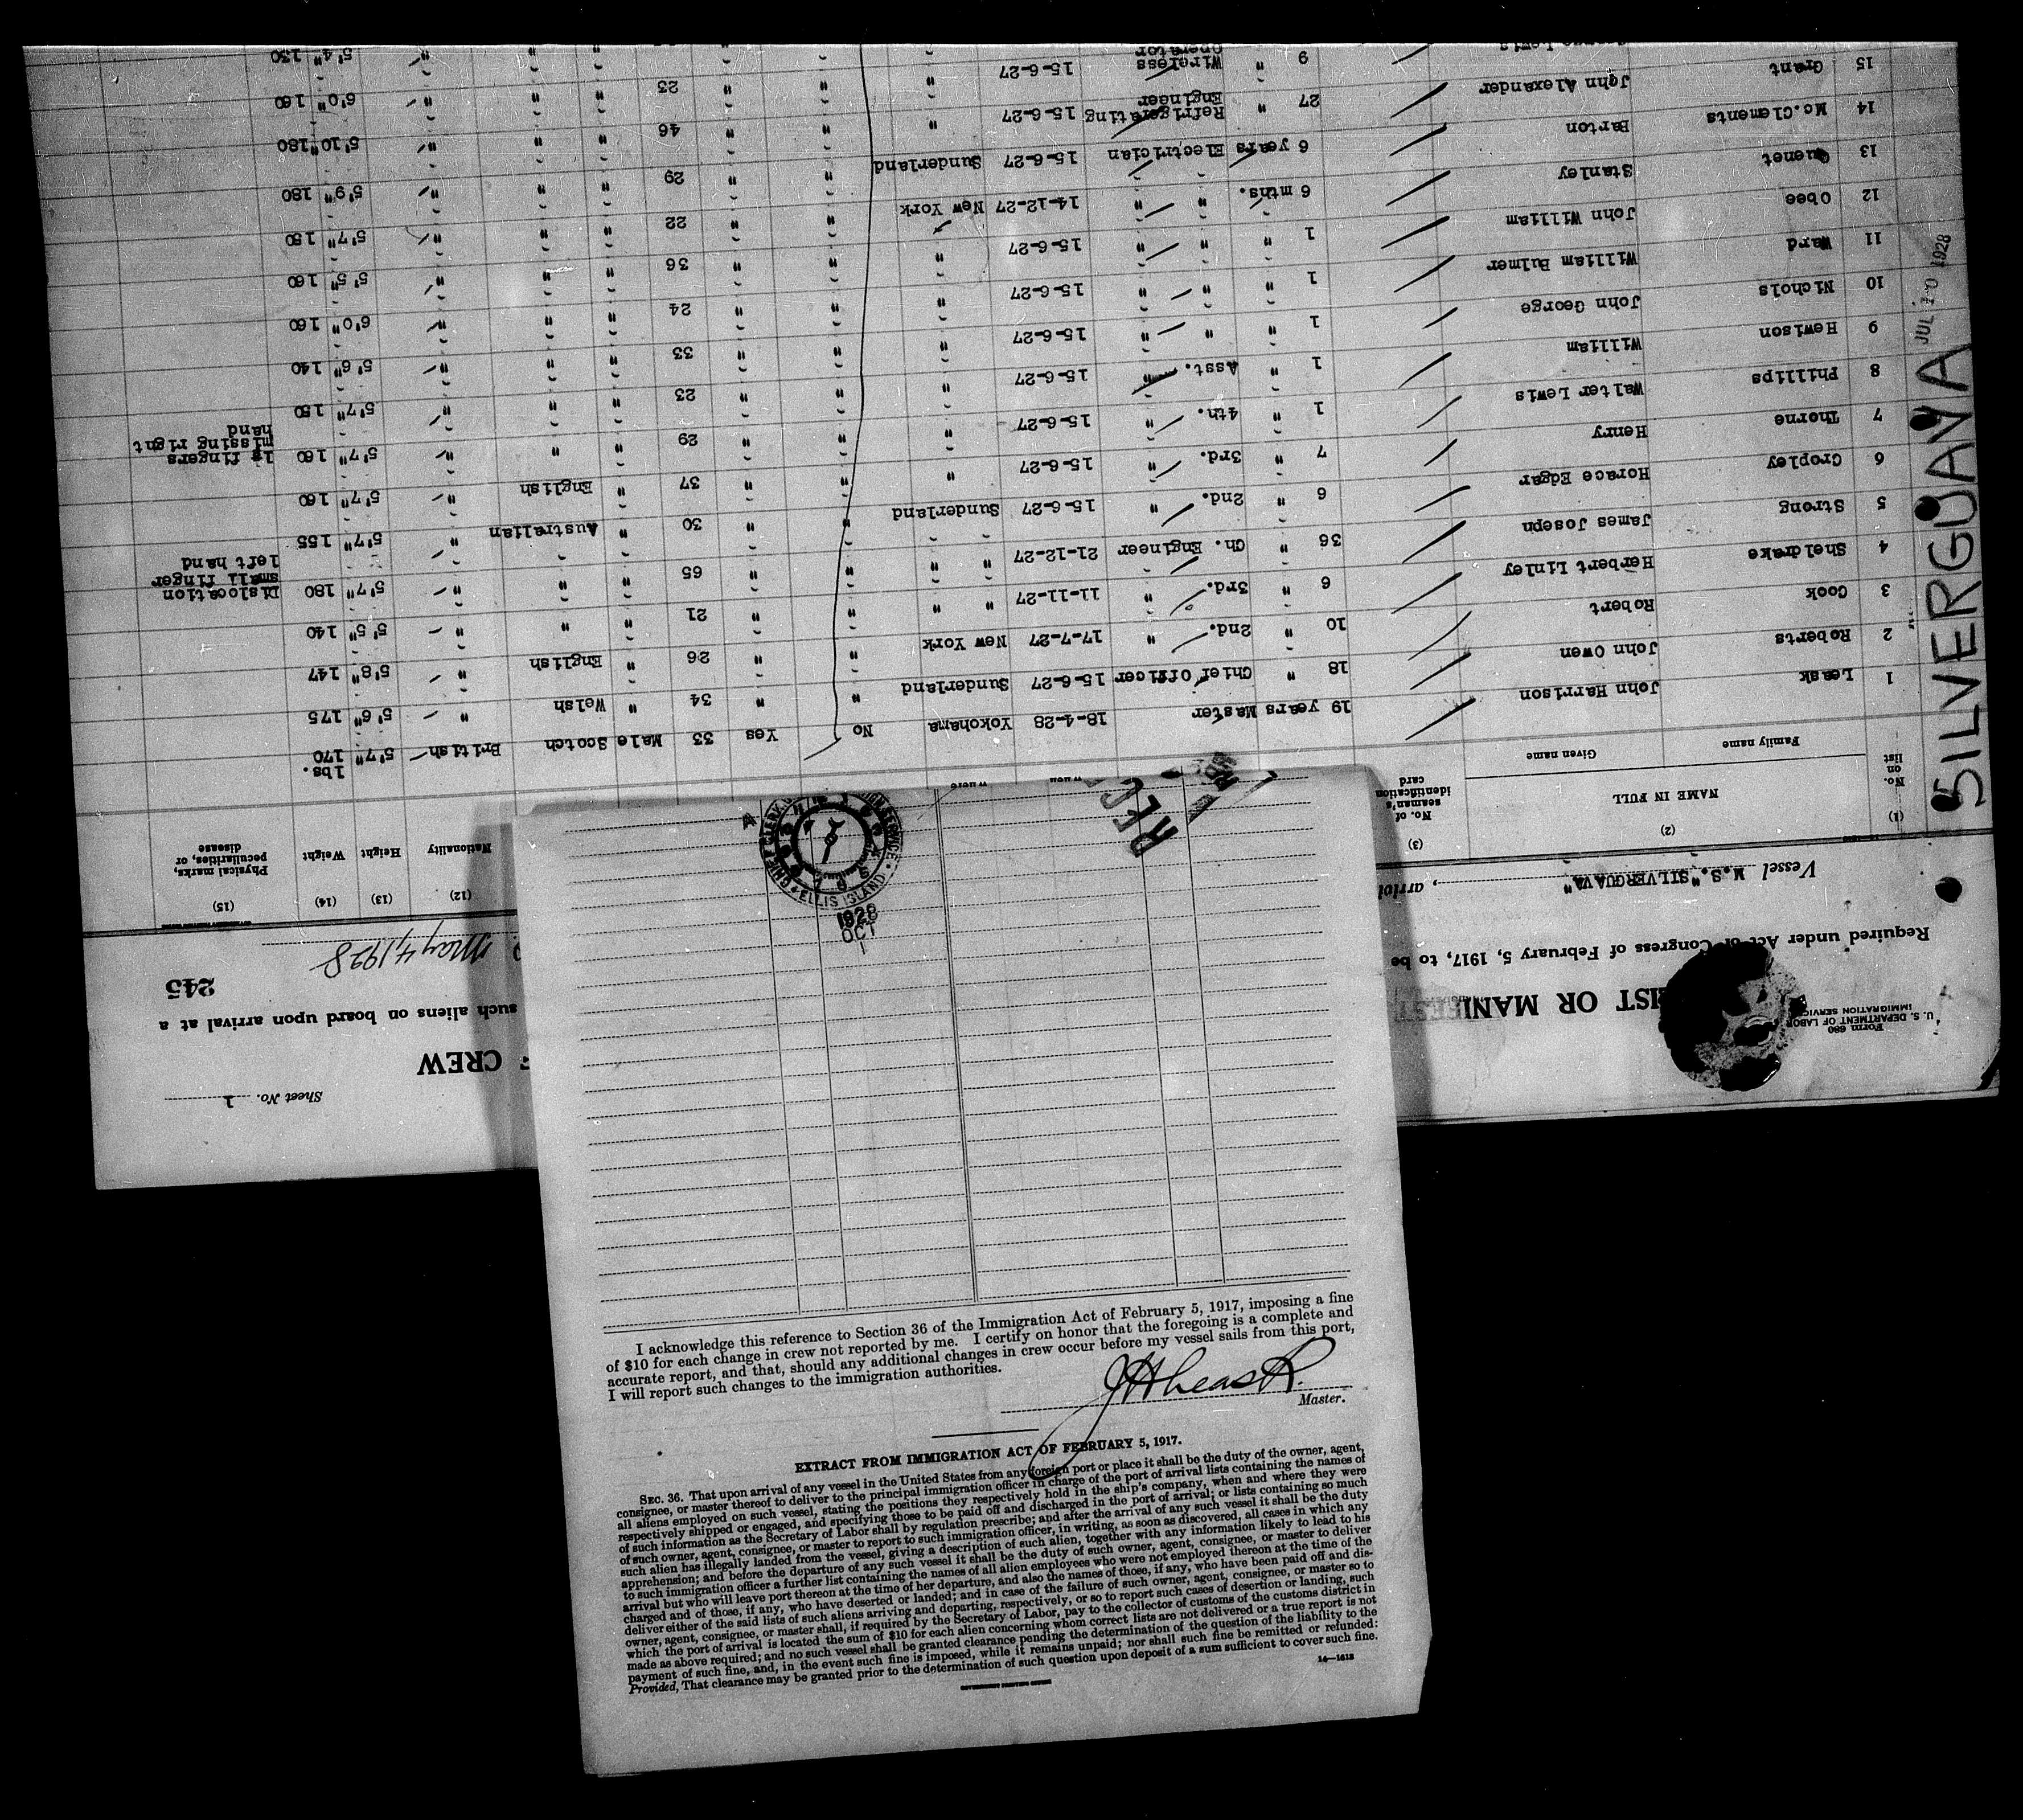 Form 680
U. S. DEPARTMENT OF LABOR
IMMIGRATION SERVICE
Sheet No. 1
IST OR MANI
CREW
Required under Act of Congress of February 5, 1917, to be
such aliens on board upon arrival at a
245
Vessel M.S. "SILVERGUAVA"
May 4, 1928
(1) (2) (3) (12) (13) (14) (15)
No. on list NAME IN FULL No. of seaman's identification card Nationality Height Weight Physical marks, peculiarities, or disease
Family name Given name
1 Leask John Harrison 19 years Master 18-4-28 Yokohama No Yes 33 Male Scotch British 5'7" 170 lbs.
2 Roberts John Owen 18 " Chief Officer 15-6-27 Sunderland " " 34 " Welsh " 5'6" 175
3 Cook Robert 10 " 2nd. " 17-7-27 New York " " 26 " English " 5'8" 147
4 Sheldrake Herbert Linley 6 " 3rd. " 11-11-27 " " " " 21 " " " 5'5" 140
5 Strong James Joseph 36 " Ch. Engineer 21-12-27 " " " " 65 " " " 5'7" 180 Dislocation small finger left hand
6 Cropley Horace Edgar 6 " 2nd. " 15-6-27 Sunderland " " 30 " Australian " 5'7" 155
7 Thorne Henry 7 " 3rd. " 15-6-27 " " " 37 " English " 5'7" 160
8 Phillips Walter Lewis 1 " 4th. " 15-6-27 " " " 29 " " " 5'7" 160 fingers missing right hand
9 Hewison William 1 " Asst. " 15-6-27 " " " 23 " " " 5'7" 150
10 Nichols John George 1 " " " 15-6-27 " " " 33 " " " 5'6" 140
11 Ward William Bulmer 1 " " " 15-6-27 " " " 24 " " " 6'0" 160
12 Obee John William 1 " " " 15-6-27 " " " 36 " " " 5'5" 160
13 Quenet Stanley 6 mths. " " 14-12-27 New York " " 22 " " " 5'7" 150
14 Mc.Clements Barton 6 years Electrician 15-6-27 Sunderland " " 29 " " " 5'9" 180
15 Grant John Alexander 27 " Refrigerating Engineer 15-6-27 " " " 46 " " " 5'10" 180
Lewis 9 " Wireless Operator 15-6-27 " " " 23 " " " 6'0" 160
5'4" 130
SILVERGUAVA
JUL 10 1928
CHIEF CLERK
ELLIS ISLAND
1928
OCT
1
I acknowledge this reference to Section 36 of the Immigration Act of February 5, 1917, imposing a fine
of $10 for each change in crew not reported by me. I certify on honor that the foregoing is a complete and
accurate report, and that, should any additional changes in crew occur before my vessel sails from this port,
I will report such changes to the immigration authorities.
JHLeask.
Master.
EXTRACT FROM IMMIGRATION ACT OF FEBRUARY 5, 1917.
SEC. 36. That upon arrival of any vessel in the United States from any foreign port or place it shall be the duty of the owner, agent,
consignee, or master thereof to deliver to the principal immigration officer in charge of the port of arrival lists containing the names of
all aliens employed on such vessel, stating the positions they respectively hold in the ship's company, when and where they were
respectively shipped or engaged, and specifying those to be paid off and discharged in the port of arrival; or lists containing so much
of such information as the Secretary of Labor shall by regulation prescribe; and after the arrival of any such vessel it shall be the duty
of such owner, agent, consignee, or master to report to such immigration officer, in writing, as soon as discovered, all cases in which any
such alien has illegally landed from the vessel, giving a description of such alien, together with any information likely to lead to his
apprehension; and before the departure of any such vessel it shall be the duty of such owner, agent, consignee, or master to deliver
to such immigration officer a further list containing the names of all alien employees who were not employed thereon at the time of the
arrival but who will leave port thereon at the time of her departure, and also the names of those, if any, who have been paid off and dis-
charged and of those, if any, who have deserted or landed; and in case of the failure of such owner, agent, consignee, or master so to
deliver either of the said lists of such aliens arriving and departing, respectively, or so to report such cases of desertion or landing, such
owner, agent, consignee, or master shall, if required by the Secretary of Labor, pay to the collector of customs of the customs district in
which the port of arrival is located the sum of $10 for each alien concerning whom correct lists are not delivered or a true report is not
made as above required; and no such vessel shall be granted clearance pending the determination of the question of the liability to the
payment of such fine, and, in the event such fine is imposed, while it remains unpaid; nor shall such fine be remitted or refunded:
Provided, That clearance may be granted prior to the determination of such question upon deposit of a sum sufficient to cover such fine.
14—1613
GOVERNMENT PRINTING OFFICE